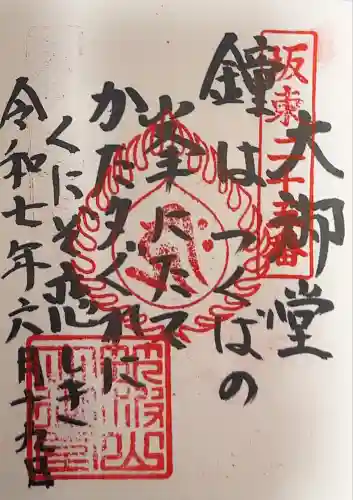 坂東二十五番
大御堂
鐘は つくばの
峯にたて
かた夕ぐれに
くにぞ恋しき
令和七年六月十九日